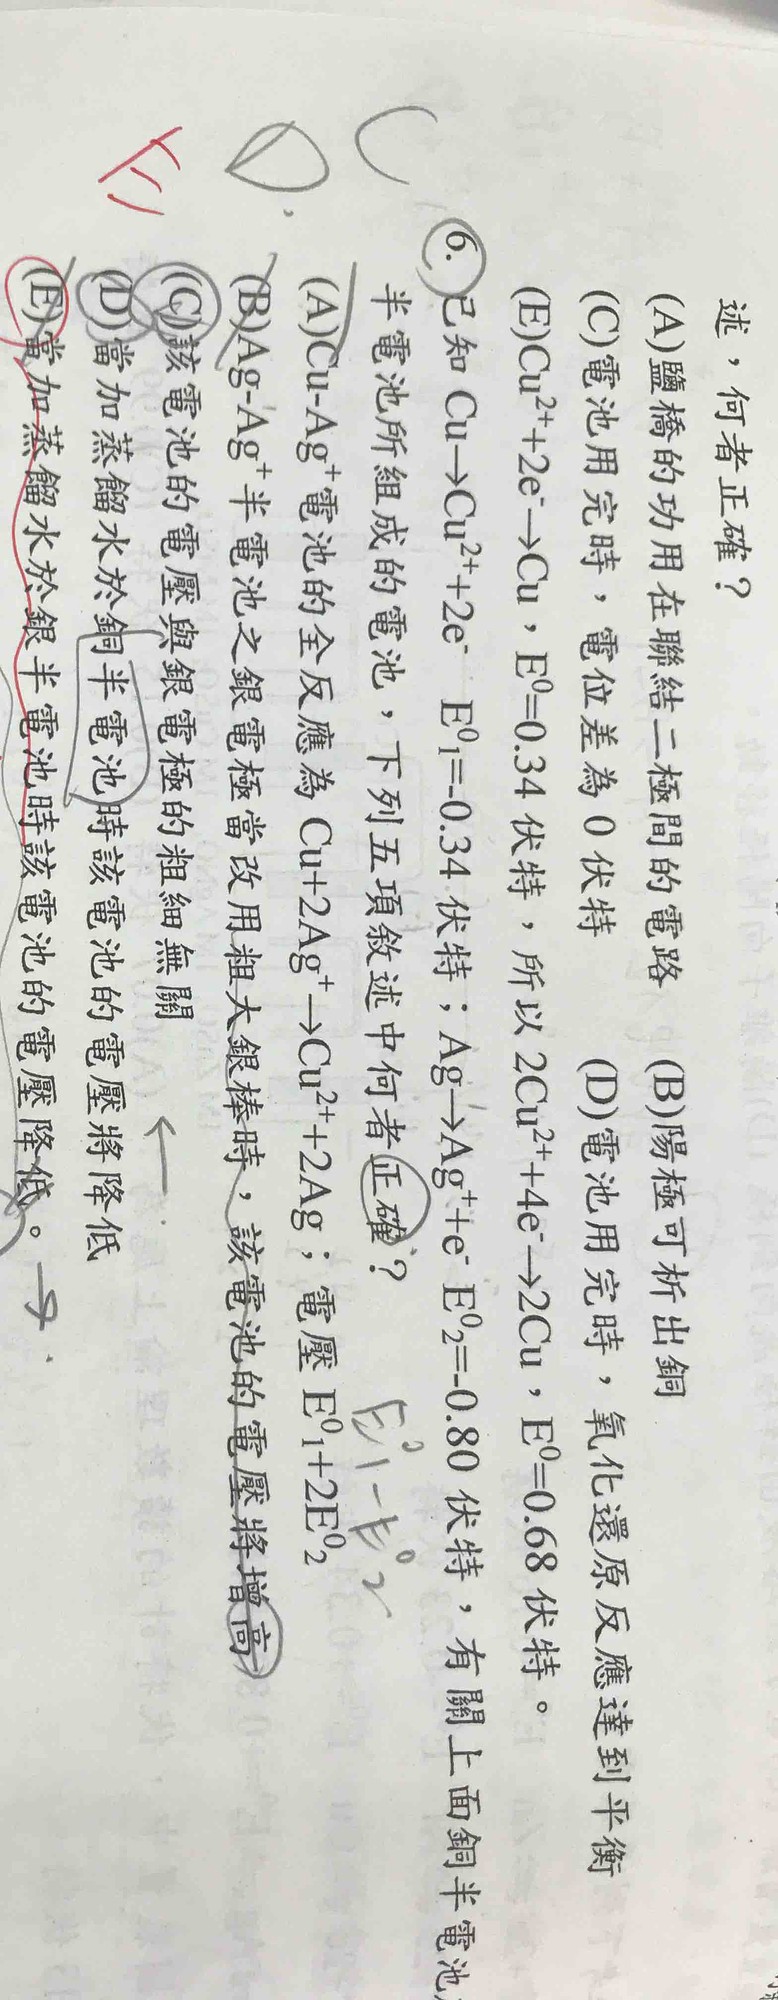 述，何者正確？
(A)鹽橋的功用在聯結二極間的電路 (B)陽極可析出銅
(C)電池用完時，電位差為0伏特 (D)電池用完時，氧化還原反應達到平衡
(E)Cu²⁺+2e⁻→Cu，E⁰=0.34伏特，所以2Cu²⁺+4e⁻→2Cu，E⁰=0.68伏特。
6.已知 Cu→Cu²⁺+2e⁻ E⁰₁=-0.34伏特；Ag→Ag⁺+e⁻ E⁰₂=-0.80伏特，有關上面銅半電池
半電池所組成的電池，下列五項敘述中何者正確？
E⁰1-E⁰2
(A)Cu-Ag⁺電池的全反應為 Cu+2Ag⁺→Cu²⁺+2Ag；電壓 E⁰₁+2E⁰₂
(B)Ag-Ag⁺半電池之銀電極當改用粗大銀棒時，該電池的電壓將增高
(C)該電池的電壓與銀電極的粗細無關
(D)當加蒸餾水於銅半電池時該電池的電壓將降低
←
(E)當加蒸餾水於銀半電池時該電池的電壓降低。
→
C
D,
E)